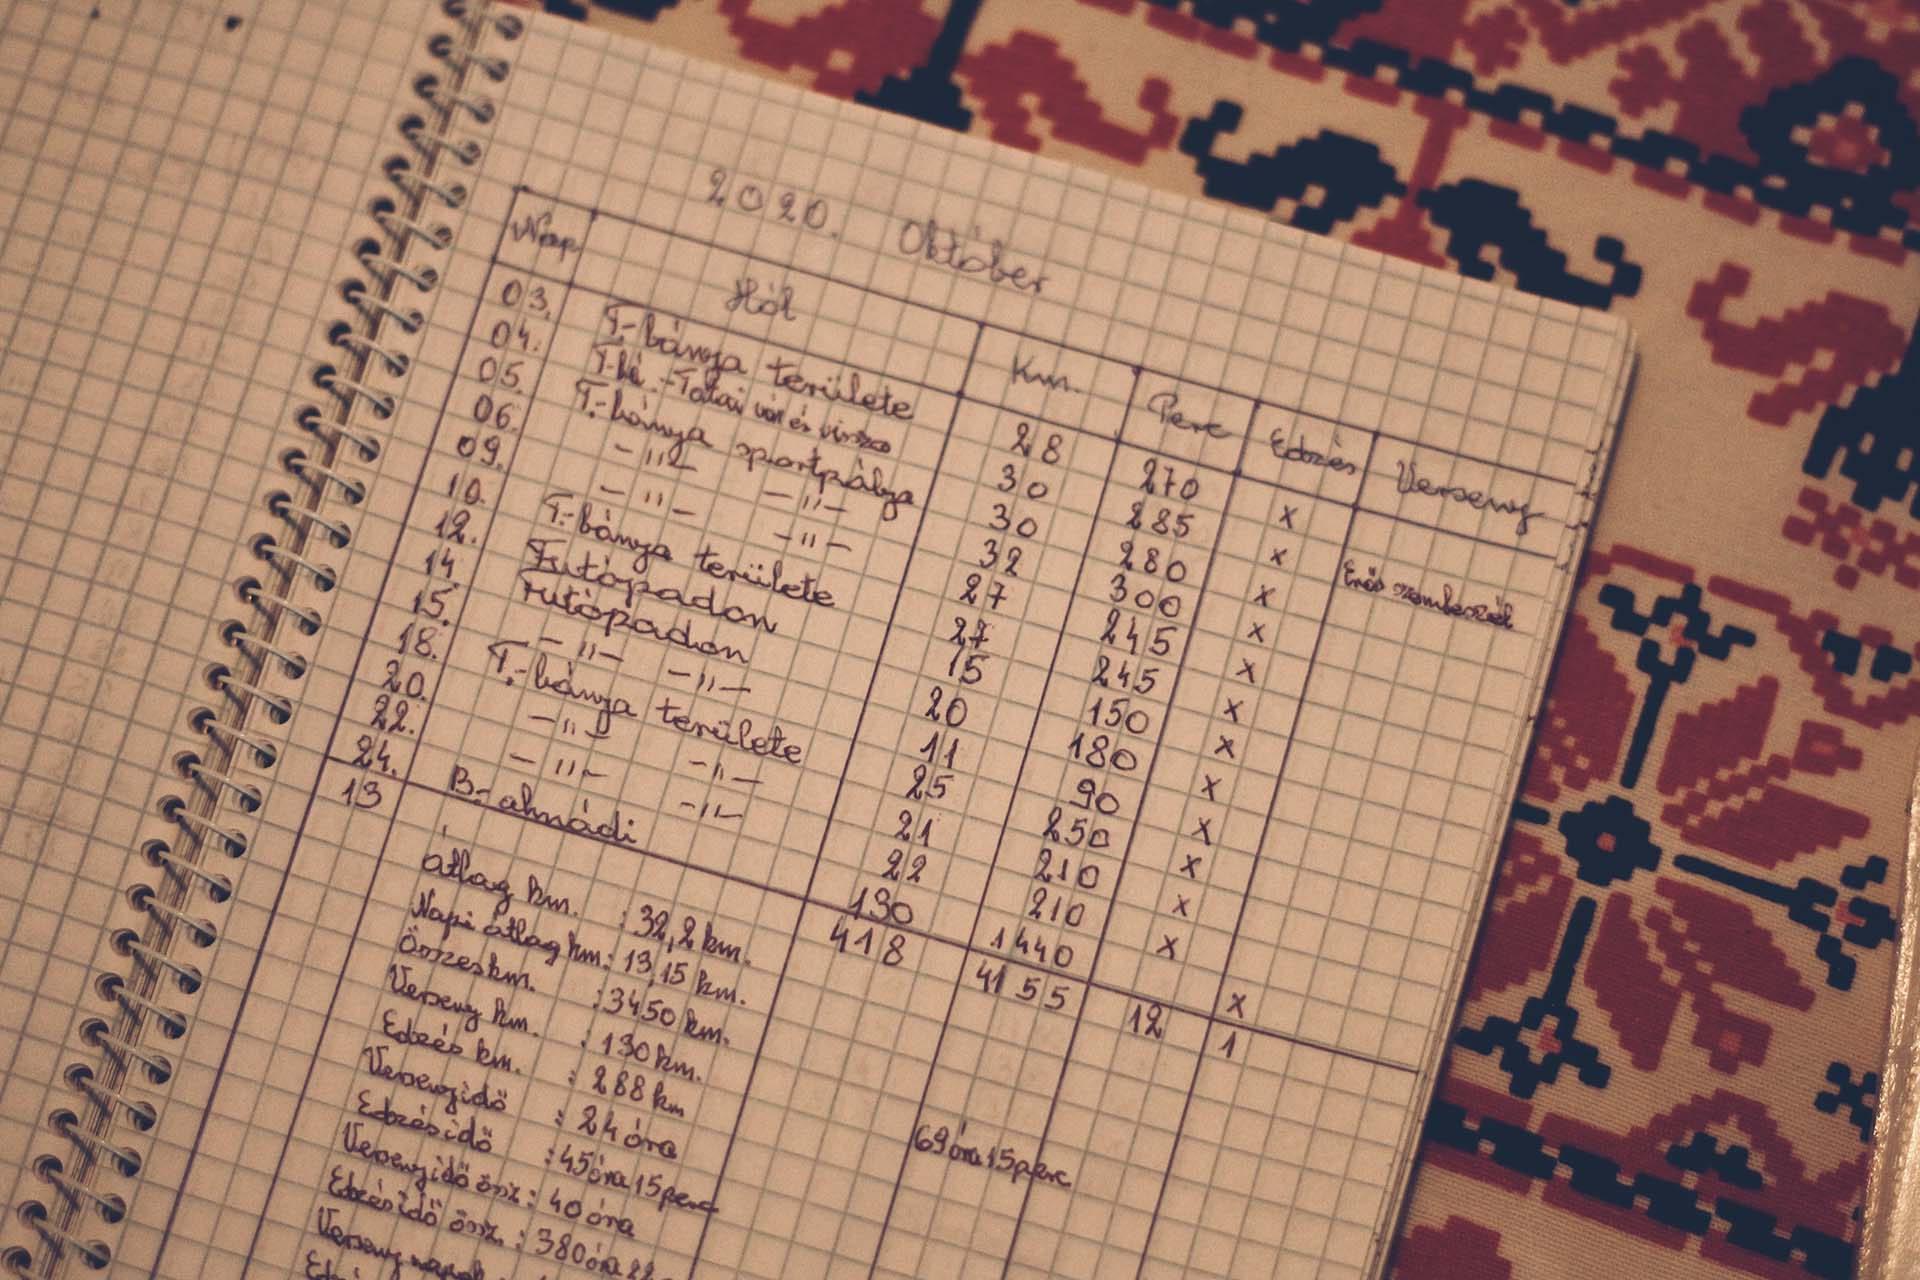 2020. Október
Nap Hol Km. Perc Edzés Verseny
03. T.-bánya területe 28 270 x
04. T.bá.-Tatai vár és vissza 30 285 x Erős szembeszél
05. T.-bánya sportpálya 30 280 x
06. -"- -"- 32 300 x
09. -"- -"- 27 245 x
10. T.-bánya területe 27 245 x
12. Futópadon 15 150 x
14. Futópadon 20 180 x
15. -"- -"- 11 90 x
18. T.-bánya területe 25 250 x
20. -"- -"- 21 210 x
22. -"- -"- 22 210 x
24. B.-almádi 130 1440 x
13 418 4155 12 1
Átlag km. : 32,2 km.
Napi átlag km: 13,15 km.
Összes km. : 3450 km.
Verseny km. : 130 km.
Edzés km. : 288 km
Versenyidő : 24 óra
Edzésidő : 45 óra 15 perc 69 óra 15 perc
Versenyidő össz. : 40 óra
Edzésidő össz. : 380 óra
Verseny